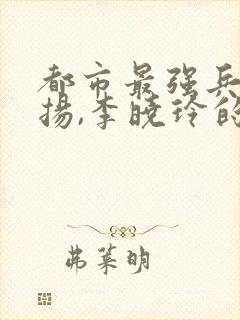 都市最强兵
揚,李曉玲的
弗莱明